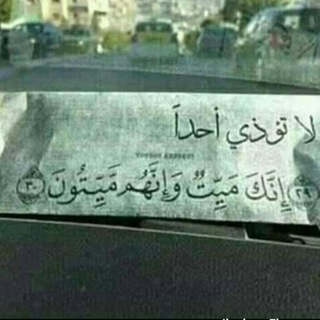 لا تؤذي أحداً
﴿٢٩﴾ إِنَّكَ مَيِّتٌ وَإِنَّهُم مَّيِّتُونَ ﴿٣٠﴾